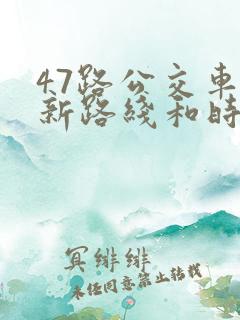 47路公交车
新路线和时
冥绯绯
未经同意禁止转载